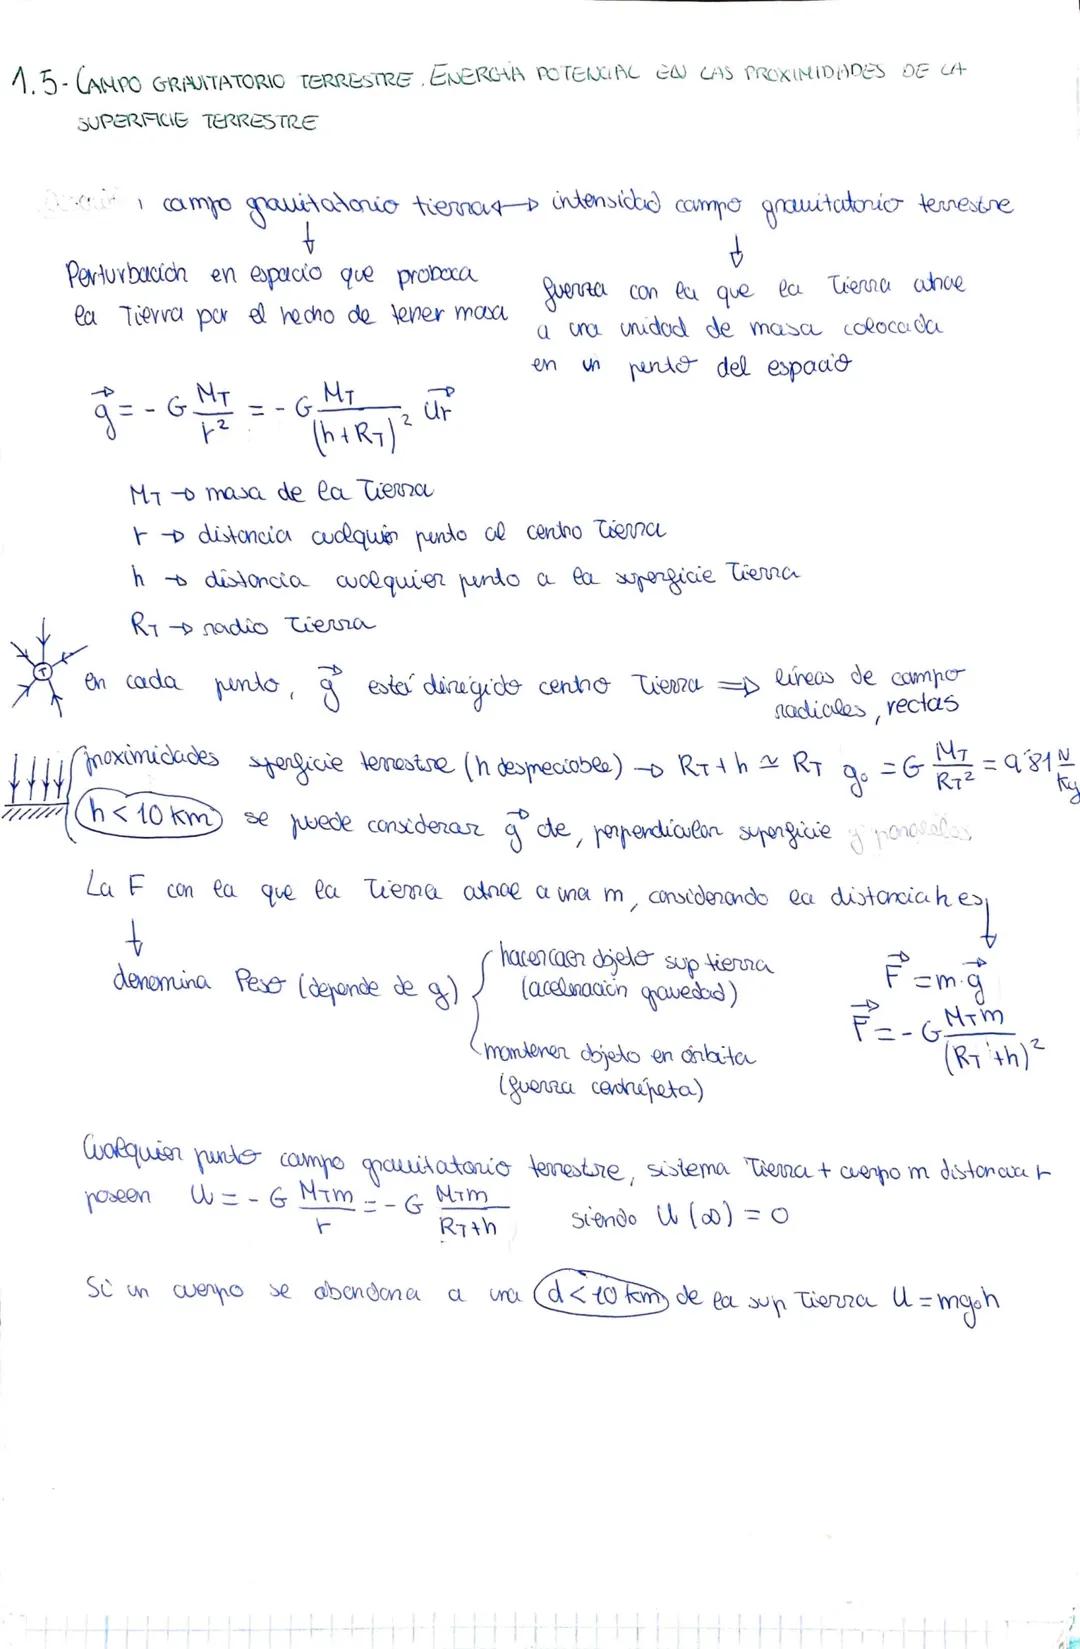 1.5- CAMPO GRAVITATORIO TERRESTRE. ENERGÍA POTENCIAL EN LAS PROXIMIDADES DE LA
SUPERFICIE TERRESTRE
campo gravitatorio tierra → intensidad campo gravitatorio terrestre
Perturbación en espacio que proboca
la Tierra por el hecho de tener masa
fuerza con la que la Tierra atrae
a una unidad de masa colocada
en un punto del espacio
g⃗ = - G M_T / r² = - G M_T / (h + R_T)² u⃗r
M_T → masa de la Tierra
r → distancia cualquier punto al centro Tierra
h → distancia cualquier punto a la superficie Tierra
R_T → radio Tierra
T
en cada punto, g⃗ está dirigido centro Tierra ⇒ líneas de campo
radiales, rectas
proximidades superficie terrestre (h despreciable) → R_T + h ≃ R_T g₀ = G M_T / R_T² = 9'81 N/kg
h < 10 km se puede considerar g⃗ cte, perpendicular superficie y paralelas
La F con la que la Tierra atrae a una m, considerando la distancia h es
↓
denomina Peso (depende de g)
hacer caer objeto sup tierra
(aceleración gravedad)
mantener objeto en órbita
(fuerza centrípeta)
F⃗ = m·g⃗
F⃗ = - G M_T m / (R_T + h)²
Cualquier punto campo gravitatorio terrestre, sistema Tierra + cuerpo m distancia r
poseen U = - G M_T m / r = - G M_T m / R_T + h siendo U (∞) = 0
Si un cuerpo se abandona a una d < 10 km de la sup Tierra U = mg₀h